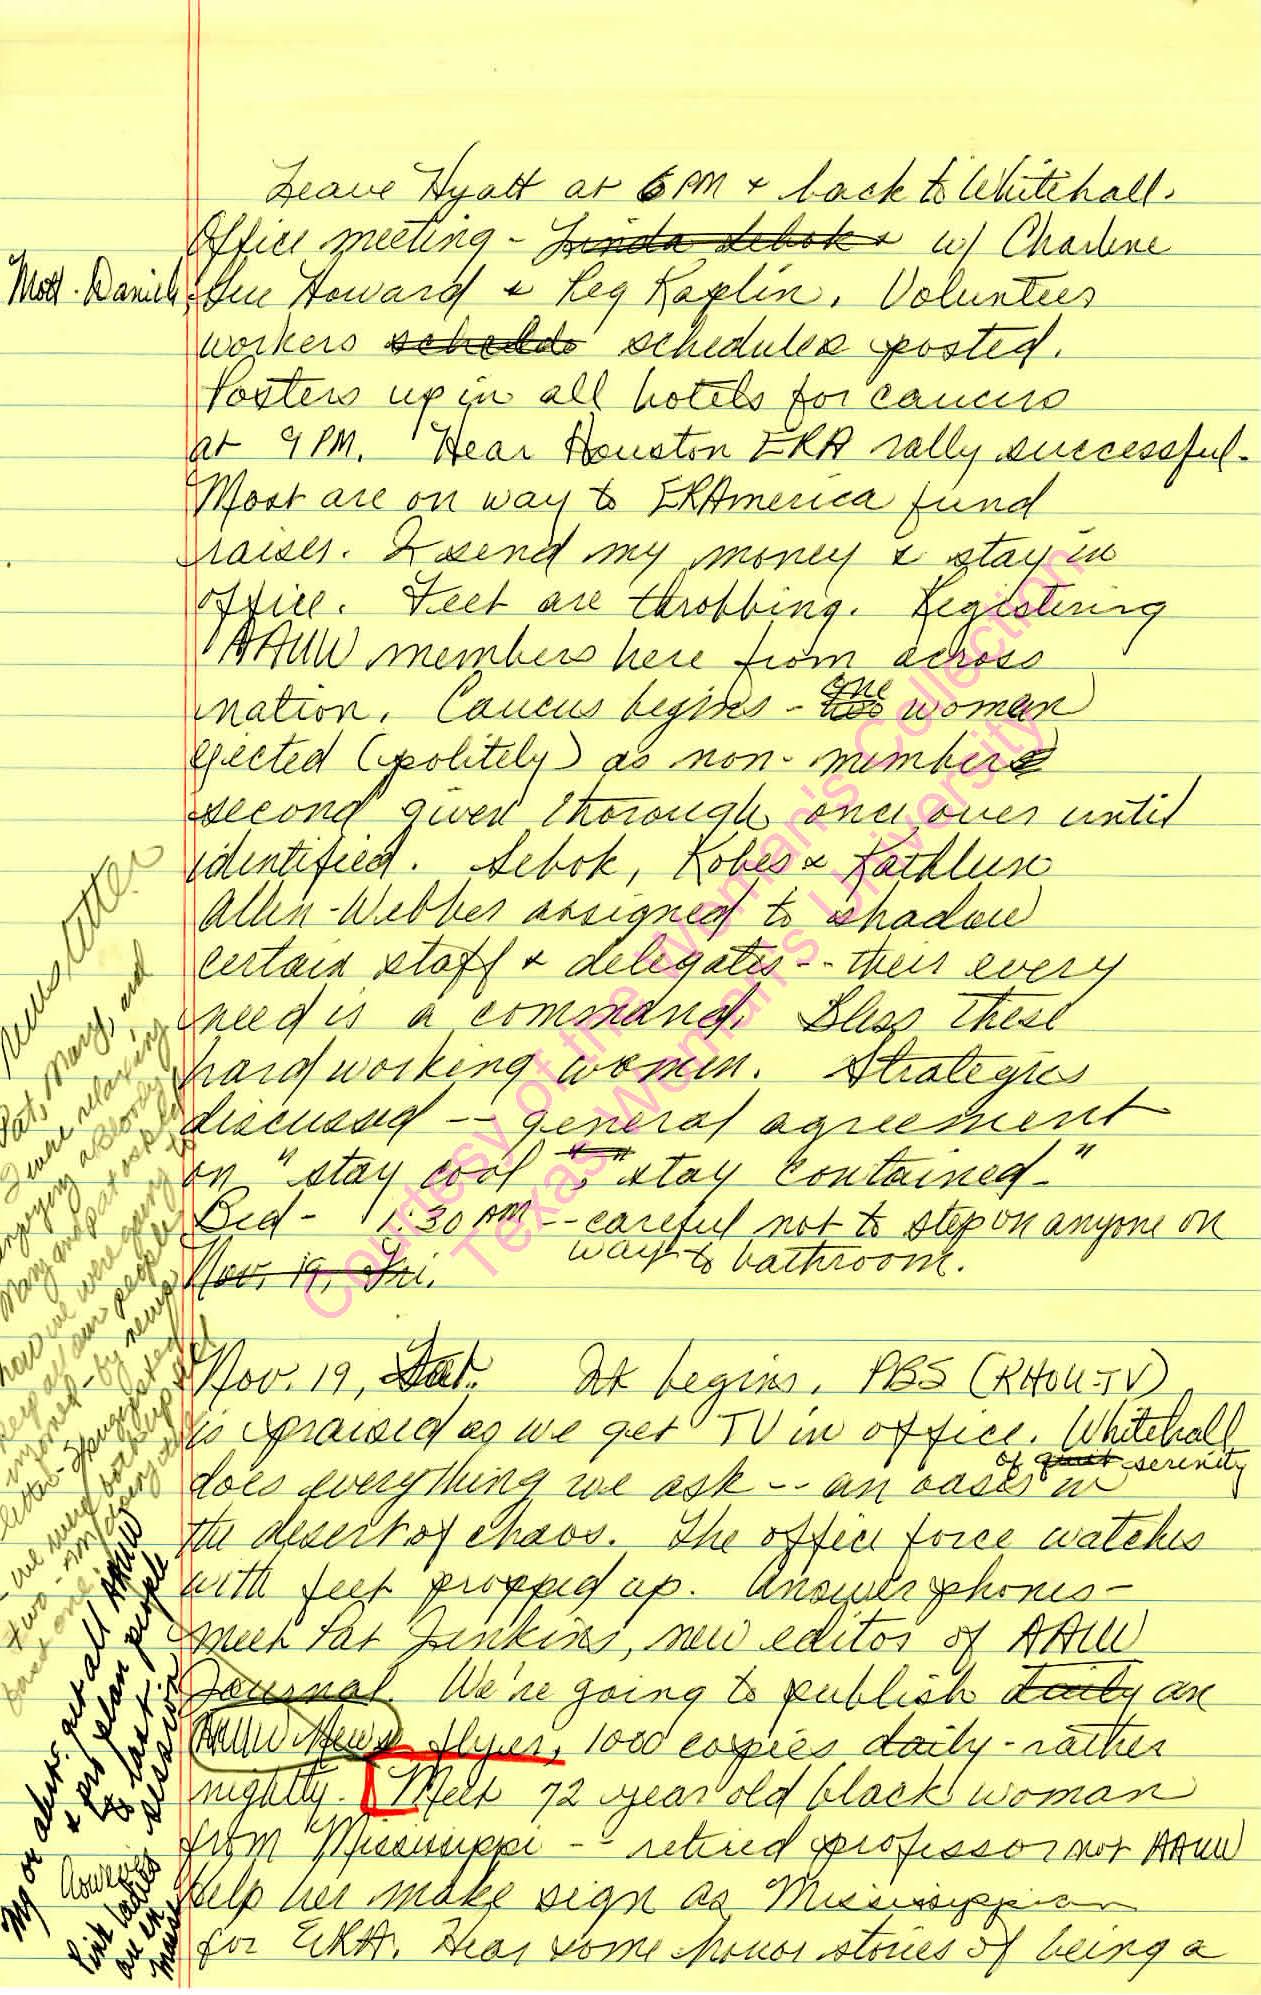 Leave Hyatt at 6 PM & back to Whitehall.
Office meeting - Linda Sebok & w/ Charlene
Mott. Daniels, Sue Howard & Peg Kaplin. Volunteer
workers schedule schedules posted.
Posters up in all hotels for caucus
at 9 PM. Hear Houston ERA rally successful.
Most are on way to ERAmerica fund
raiser. I send my money & stay in
office. Feet are throbbing. Registering
AAUW members here from across
nation. Caucus begins - two one woman
ejected (politely) as non-member
second given thorough once over until
identified. Sebok, Kobes & Kathleen
Allen-Webber assigned to shadow
certain staff & delegates -- their every
need is a command. Bless these
hard working women. Strategies
discussed -- general agreement
on "stay cool", "stay contained"
Bed - 1:30 AM -- careful not to step on anyone on
way to bathroom.
Nov. 19, Fri.
Nov. 19, Sat. It begins. PBS (KHOU-TV)
is praised as we get TV in office. Whitehall
does everything we ask -- an oasis of quiet serenity in
the desert of chaos. The office force watches
with feet propped up. Answer phones -
meet Pat Jenkins, new editor of AAUW
Journal. We're going to publish daily an
AAUW News flyer, 1000 copies daily - rather
nightly. Meet 72 year old black woman
from Mississippi -- retired professor not AAUW
Help her make sign as Mississippian
for ERA. Hear some honor stories of being a
newsletter
Pat, Mary, and
I were relaxing
enjoying a Bloody
Mary and Pat asked
how we were going to
keep all our people
informed - by news
letter - I suggested
- we were both up and
two - am doing the
last one.
My or alert. get all AAUW
& pro plan people
to last
session
However
Pink ladies
are in
mass
Courtesy of the Woman's Collection
Texas Woman's University